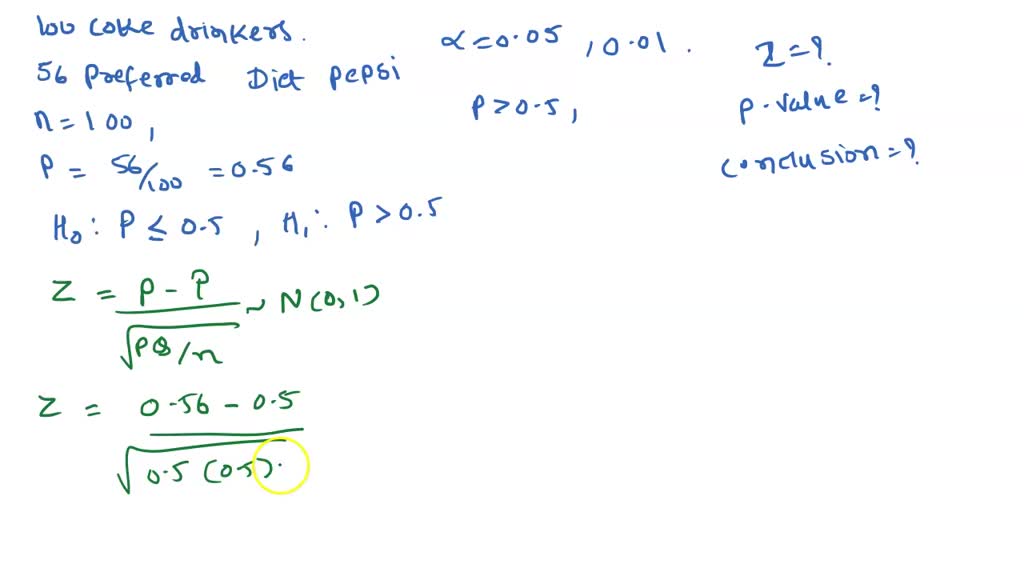 100 Coke drinkers.
56 Preferred Diet pepsi
n = 100,
P = 56/100 = 0.56
H₀: P ≤ 0.5, H₁: P > 0.5
α = 0.05, 0.01.
P > 0.5,
Z = ?
p-value = ?
conclusion = ?
Z = p - P / √PQ/n ~ N(0,1)
Z = 0.56 - 0.5 / √0.5 (0.5)